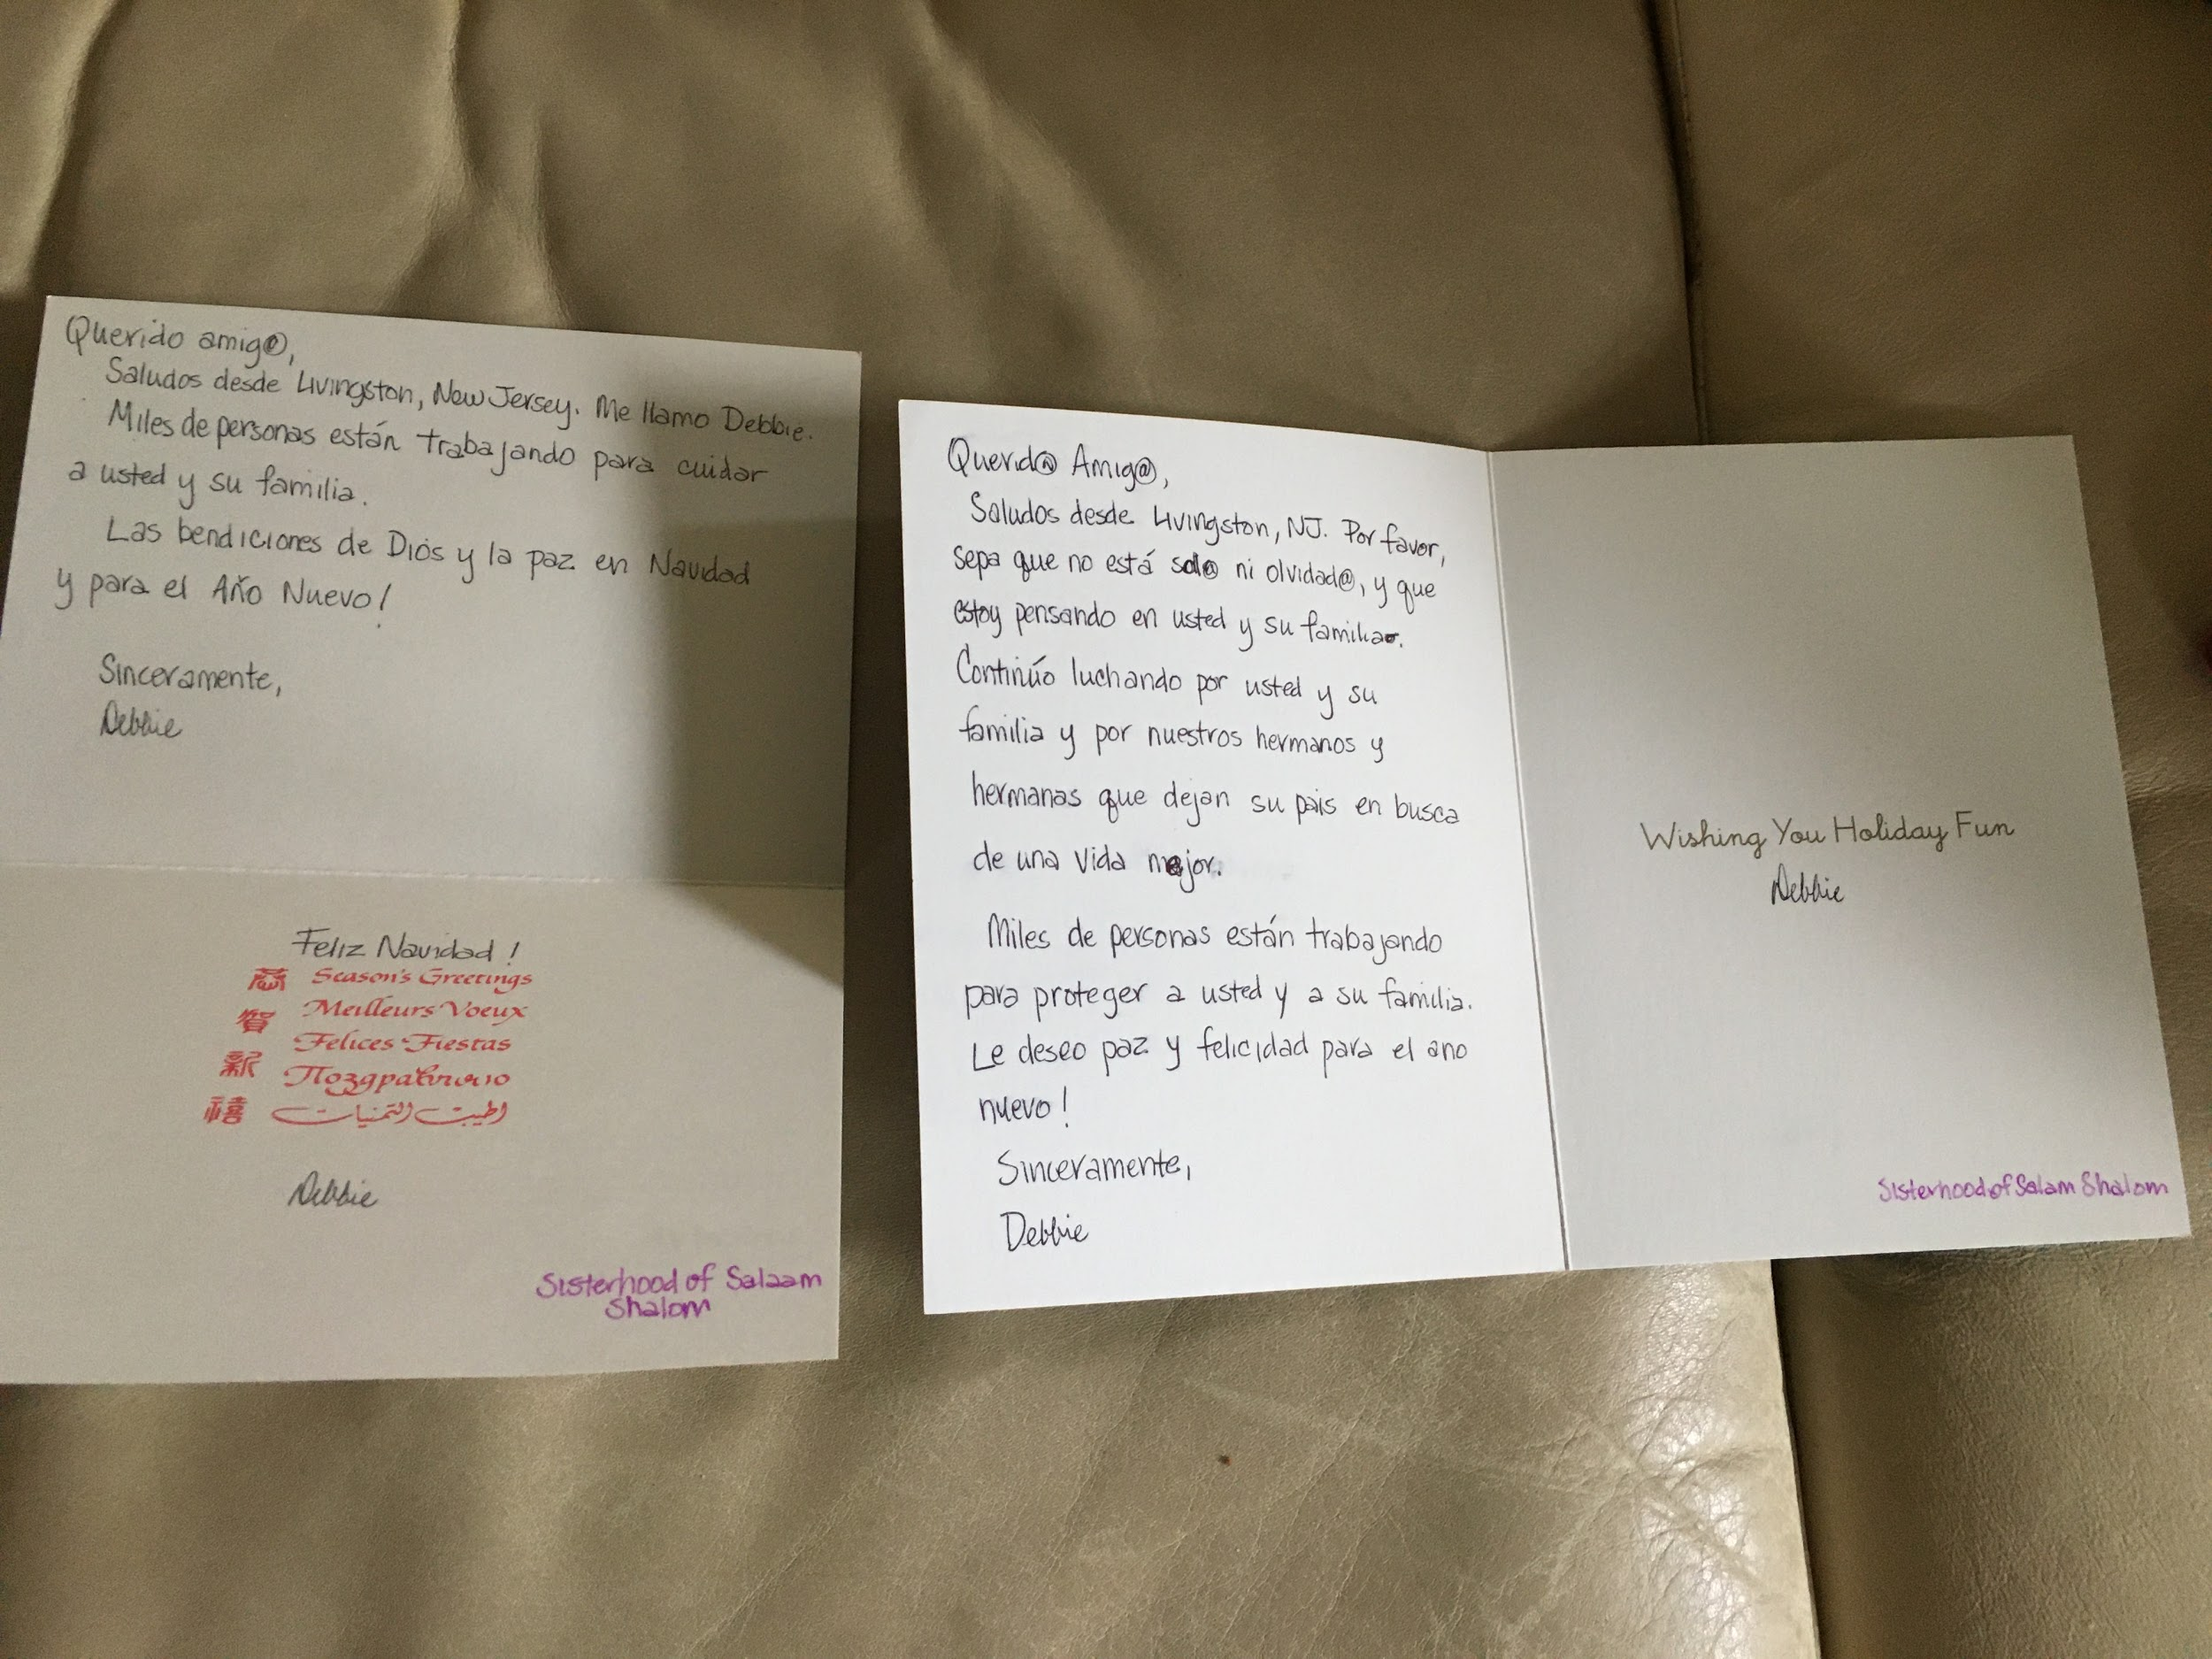 Querido amig@,
Saludos desde Livingston, New Jersey. Me llamo Debbie.
Miles de personas están trabajando para cuidar
a usted y su familia.
Las bendiciones de Dios y la paz en Navidad
y para el Año Nuevo!
Sinceramente,
Debbie
Feliz Navidad!
恭 Season's Greetings
賀 Meilleurs Voeux
新 Felices Fiestas
禧 Поздравляю
اطيب التمنيات
Debbie
Sisterhood of Salaam
Shalom
Querid@ Amig@,
Saludos desde Livingston, NJ. Por favor,
sepa que no está sol@ ni olvidad@, y que
estoy pensando en usted y su familia.
Continúo luchando por usted y su
familia y por nuestros hermanos y
hermanas que dejan su pais en busca
de una vida mejor.
Miles de personas están trabajando
para proteger a usted y a su familia.
Le deseo paz y felicidad para el ano
nuevo!
Sinceramente,
Debbie
Wishing You Holiday Fun
Debbie
Sisterhood of Salam Shalom